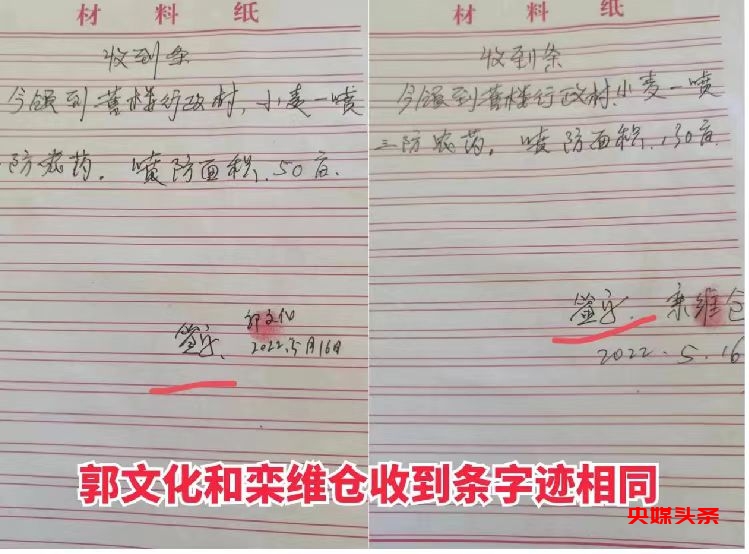 材料纸
收到条
今领到楼行政村,小麦一喷
防农药,喷防面积.50亩.
签字. 郭文化
2022.5月16日
材料纸
收到条
今领到楼行政村,小麦一喷
三防农药,喷防面积.130亩.
签字. 栾维仓
2022.5.16
郭文化和栾维仓收到条字迹相同
央媒头条